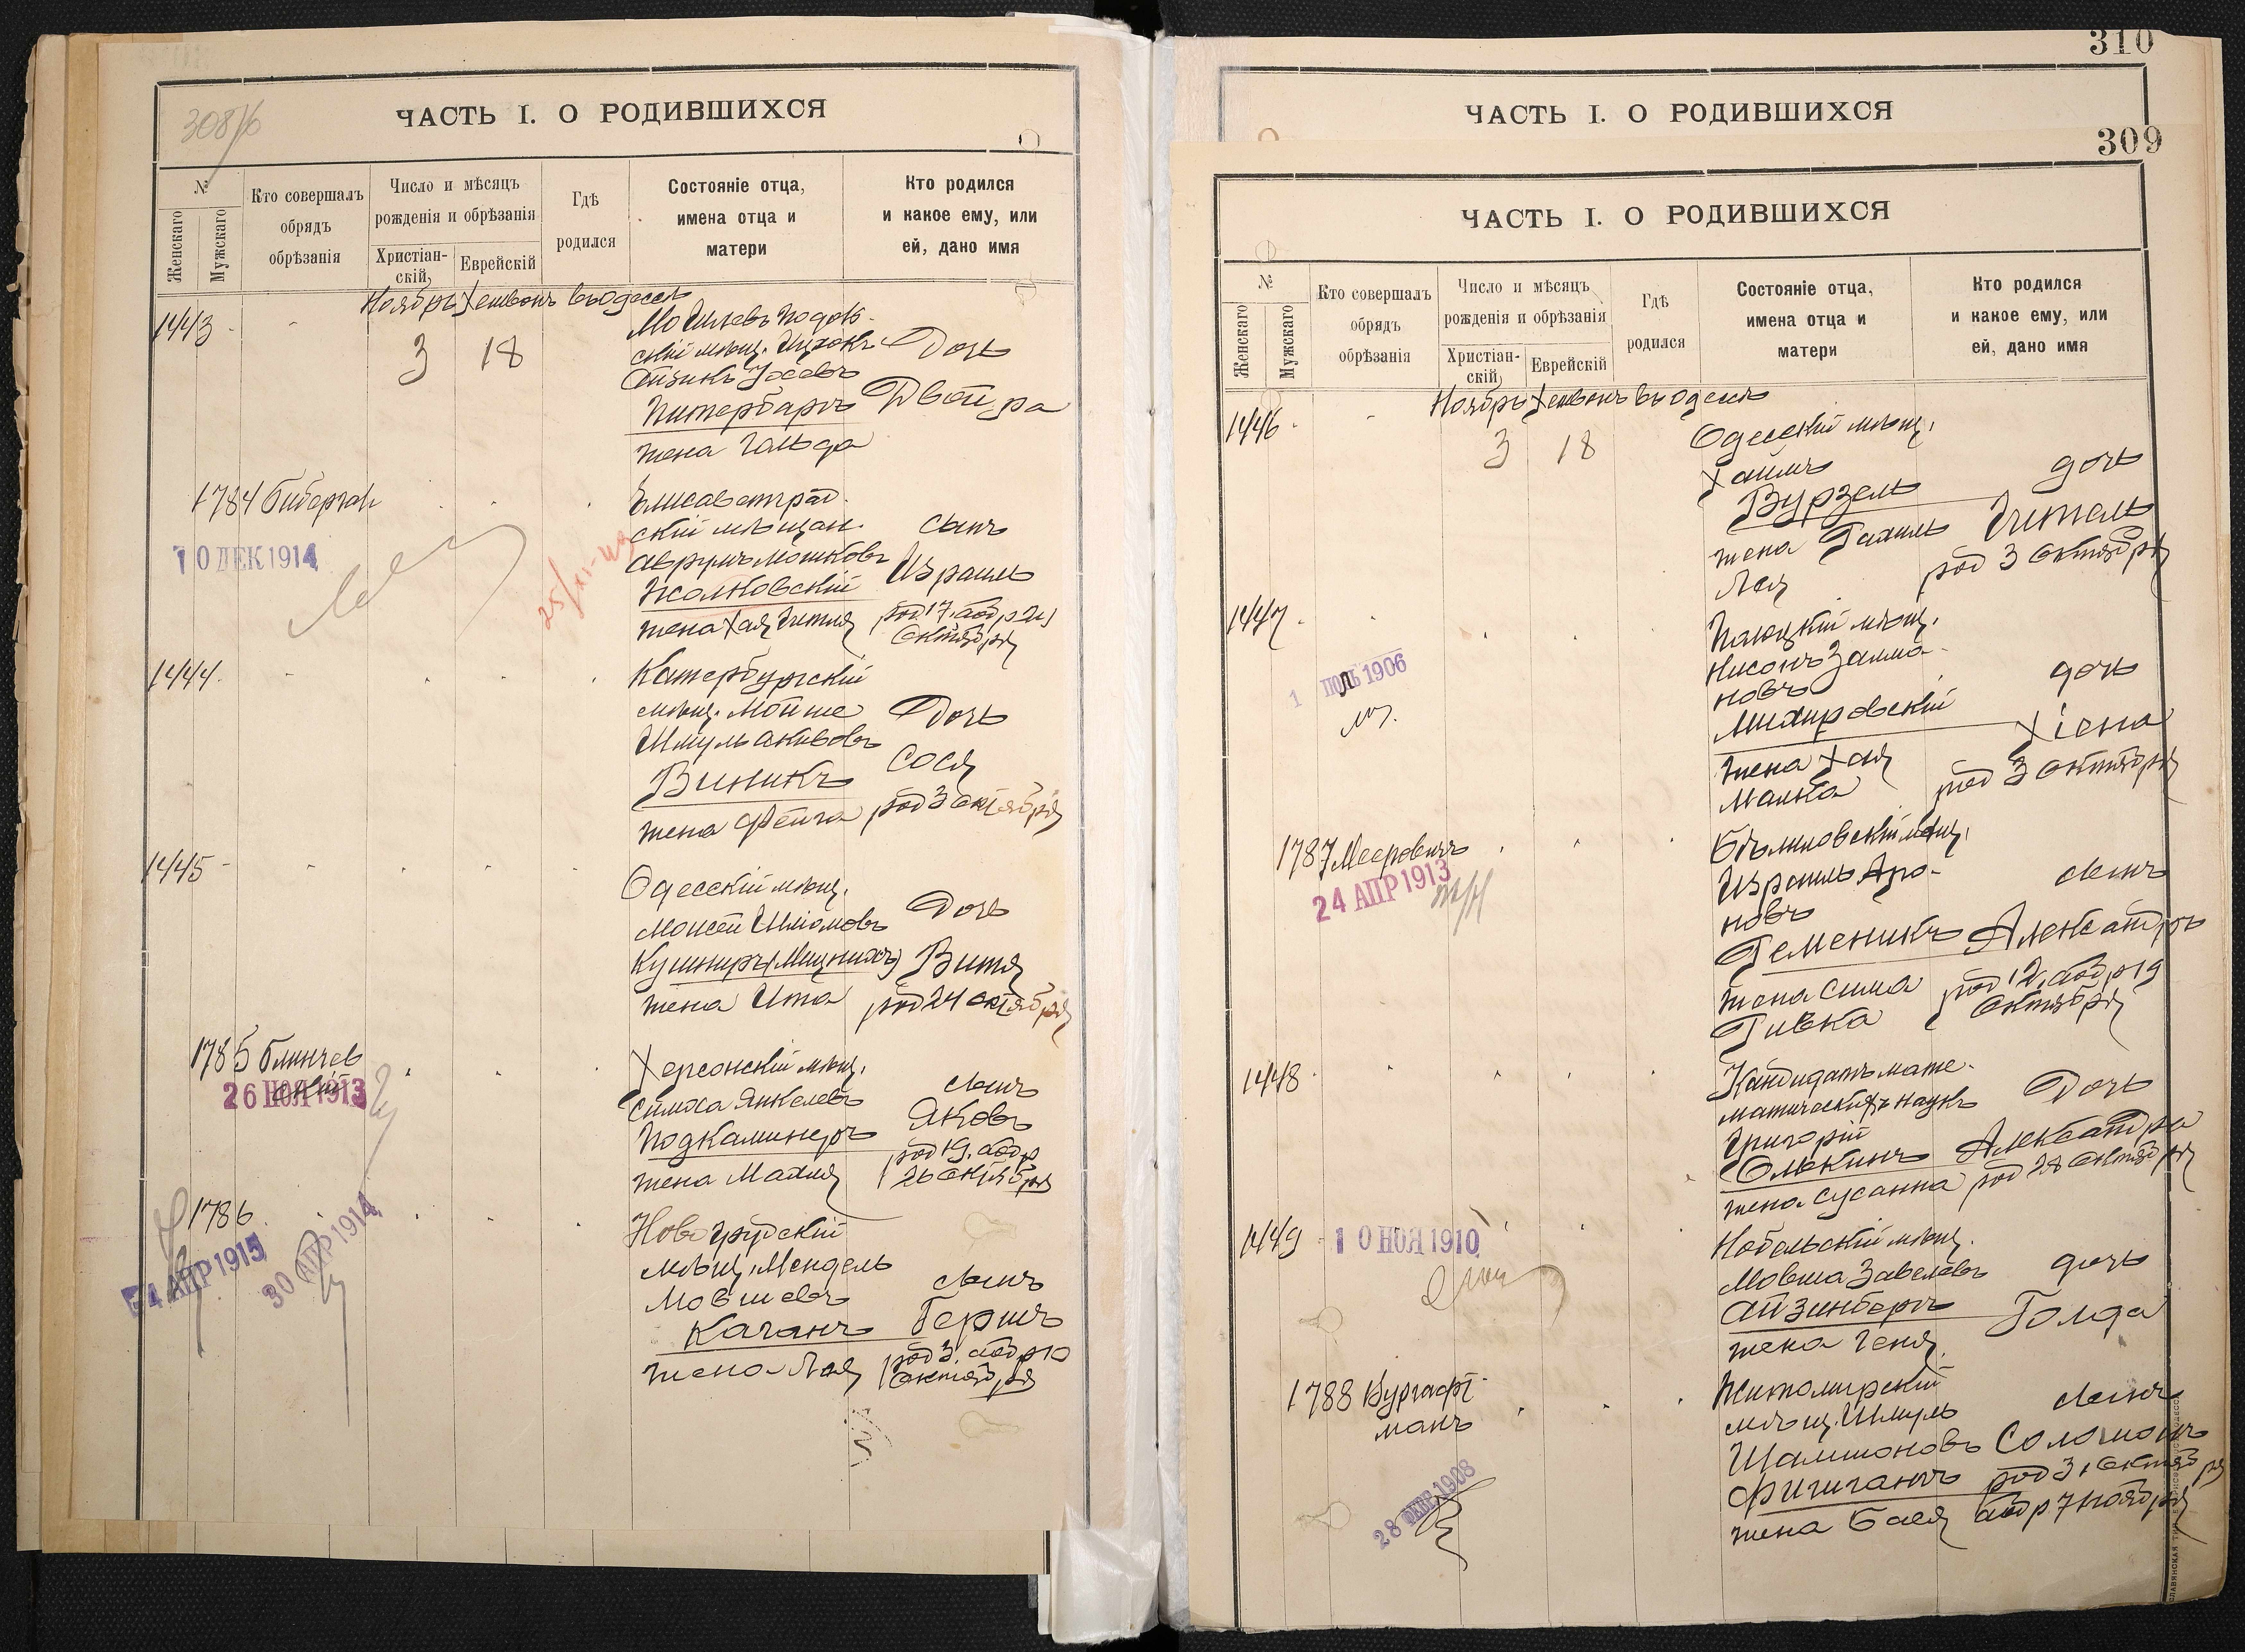 308/б
ЧАСТЬ I. О РОДИВШИХСЯ
№
Женскаго
Мужскаго
Кто совершалъ
обрядъ
обрѣзанія
Число и мѣсяцъ
рожденія и обрѣзанія
Христіан-
скій
Еврейскій
Гдѣ
родился
Состояніе отца,
имена отца и
матери
Кто родился
и какое ему, или
ей, дано имя
Ноябрь Хешвонъ въ Одессѣ
1443
3 18
Могилевъ Подоль-
скій мѣщ. Ицхокъ
Айзикъ Іосевъ
Питербаргъ
жена Гольда
Дочь
Двойра
1784
10 ДЕК 1914
25/XI-
Елисаветград
скій мѣщан.
Аврумъ Мошковъ
Жолковскій
жена Хая Гитля
сынъ
Израиль
род 17. обр 24
Октября
1444
Катербургскій
мѣщ. Мойше
Шмуль Акивовъ
Виникъ
жена Фейга
Дочь
Сося
род 3 октября
1445
Одесскій мѣщ.
Моисей Шліомовъ
Кушниръ (Мицникъ)
жена Ита
Дочь
Витя
род 24 октября
1785 Блинчев
скій
26 НОЯ 1913
Херсонскій мѣщ.
Симха Янкелевъ
Подкаминеръ
жена Махля
сынъ
Яковъ
род 19. обр
26 октября
1786
4 АПР 1915
30 АПР 1914
Новогрудскій
мѣщ. Мендель
Мовшевъ
Каганъ
жена Лея
сынъ
Гершъ
род 3. обр 10
октября
310
ЧАСТЬ I. О РОДИВШИХСЯ
309
ЧАСТЬ I. О РОДИВШИХСЯ
№
Женскаго
Мужскаго
Кто совершалъ
обрядъ
обрѣзанія
Число и мѣсяцъ
рожденія и обрѣзанія
Христіан-
скій
Еврейскій
Гдѣ
родился
Состояніе отца,
имена отца и
матери
Кто родился
и какое ему, или
ей, дано имя
Ноябрь Хешвонъ въ Одессѣ
1446
3 18
Одесскій мѣщ.
Хаимъ
Вурзель
жена Рахиль
Лея
дочь
Гитель
род 3 октября
1447
1 ІЮЛЬ 1906
мѣщ.
Нисонъ Залма-
новъ
жена Хая
Малка
дочь
Хіена
род 3 октября
1787 Мееровичъ
24 АПР 1913
Израиль Аро-
новъ
Ременикъ
жена Сима
Ривка
сынъ
Александръ
род 12, обр 19
октября
1448
Кандидатъ мате-
матическихъ наукъ
Григорій
Елькинъ
жена Сусанна
Дочь
Александра
род 28 октября
1449
10 НОЯ 1910
Нобельскій мѣщ.
Мовша Завелевъ
Айзинбергъ
жена Геня
дочь
Голда
1788 Бургафт-
манъ
28 ФЕВР 1908
Житомирскій
мѣщ. Шмуль
Шамшоновъ
жена Бася
сынъ
Соломонъ
род 31 октября
обр 7 ноября